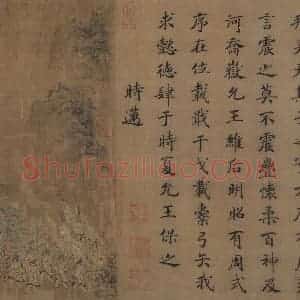 言震之莫不震疊懷柔百神及
河喬嶽允王維后明昭有周式
序在位載戢干戈載櫜弓矢我
求懿德肆于時夏允王保之
時邁
ShufaZiliao.COM